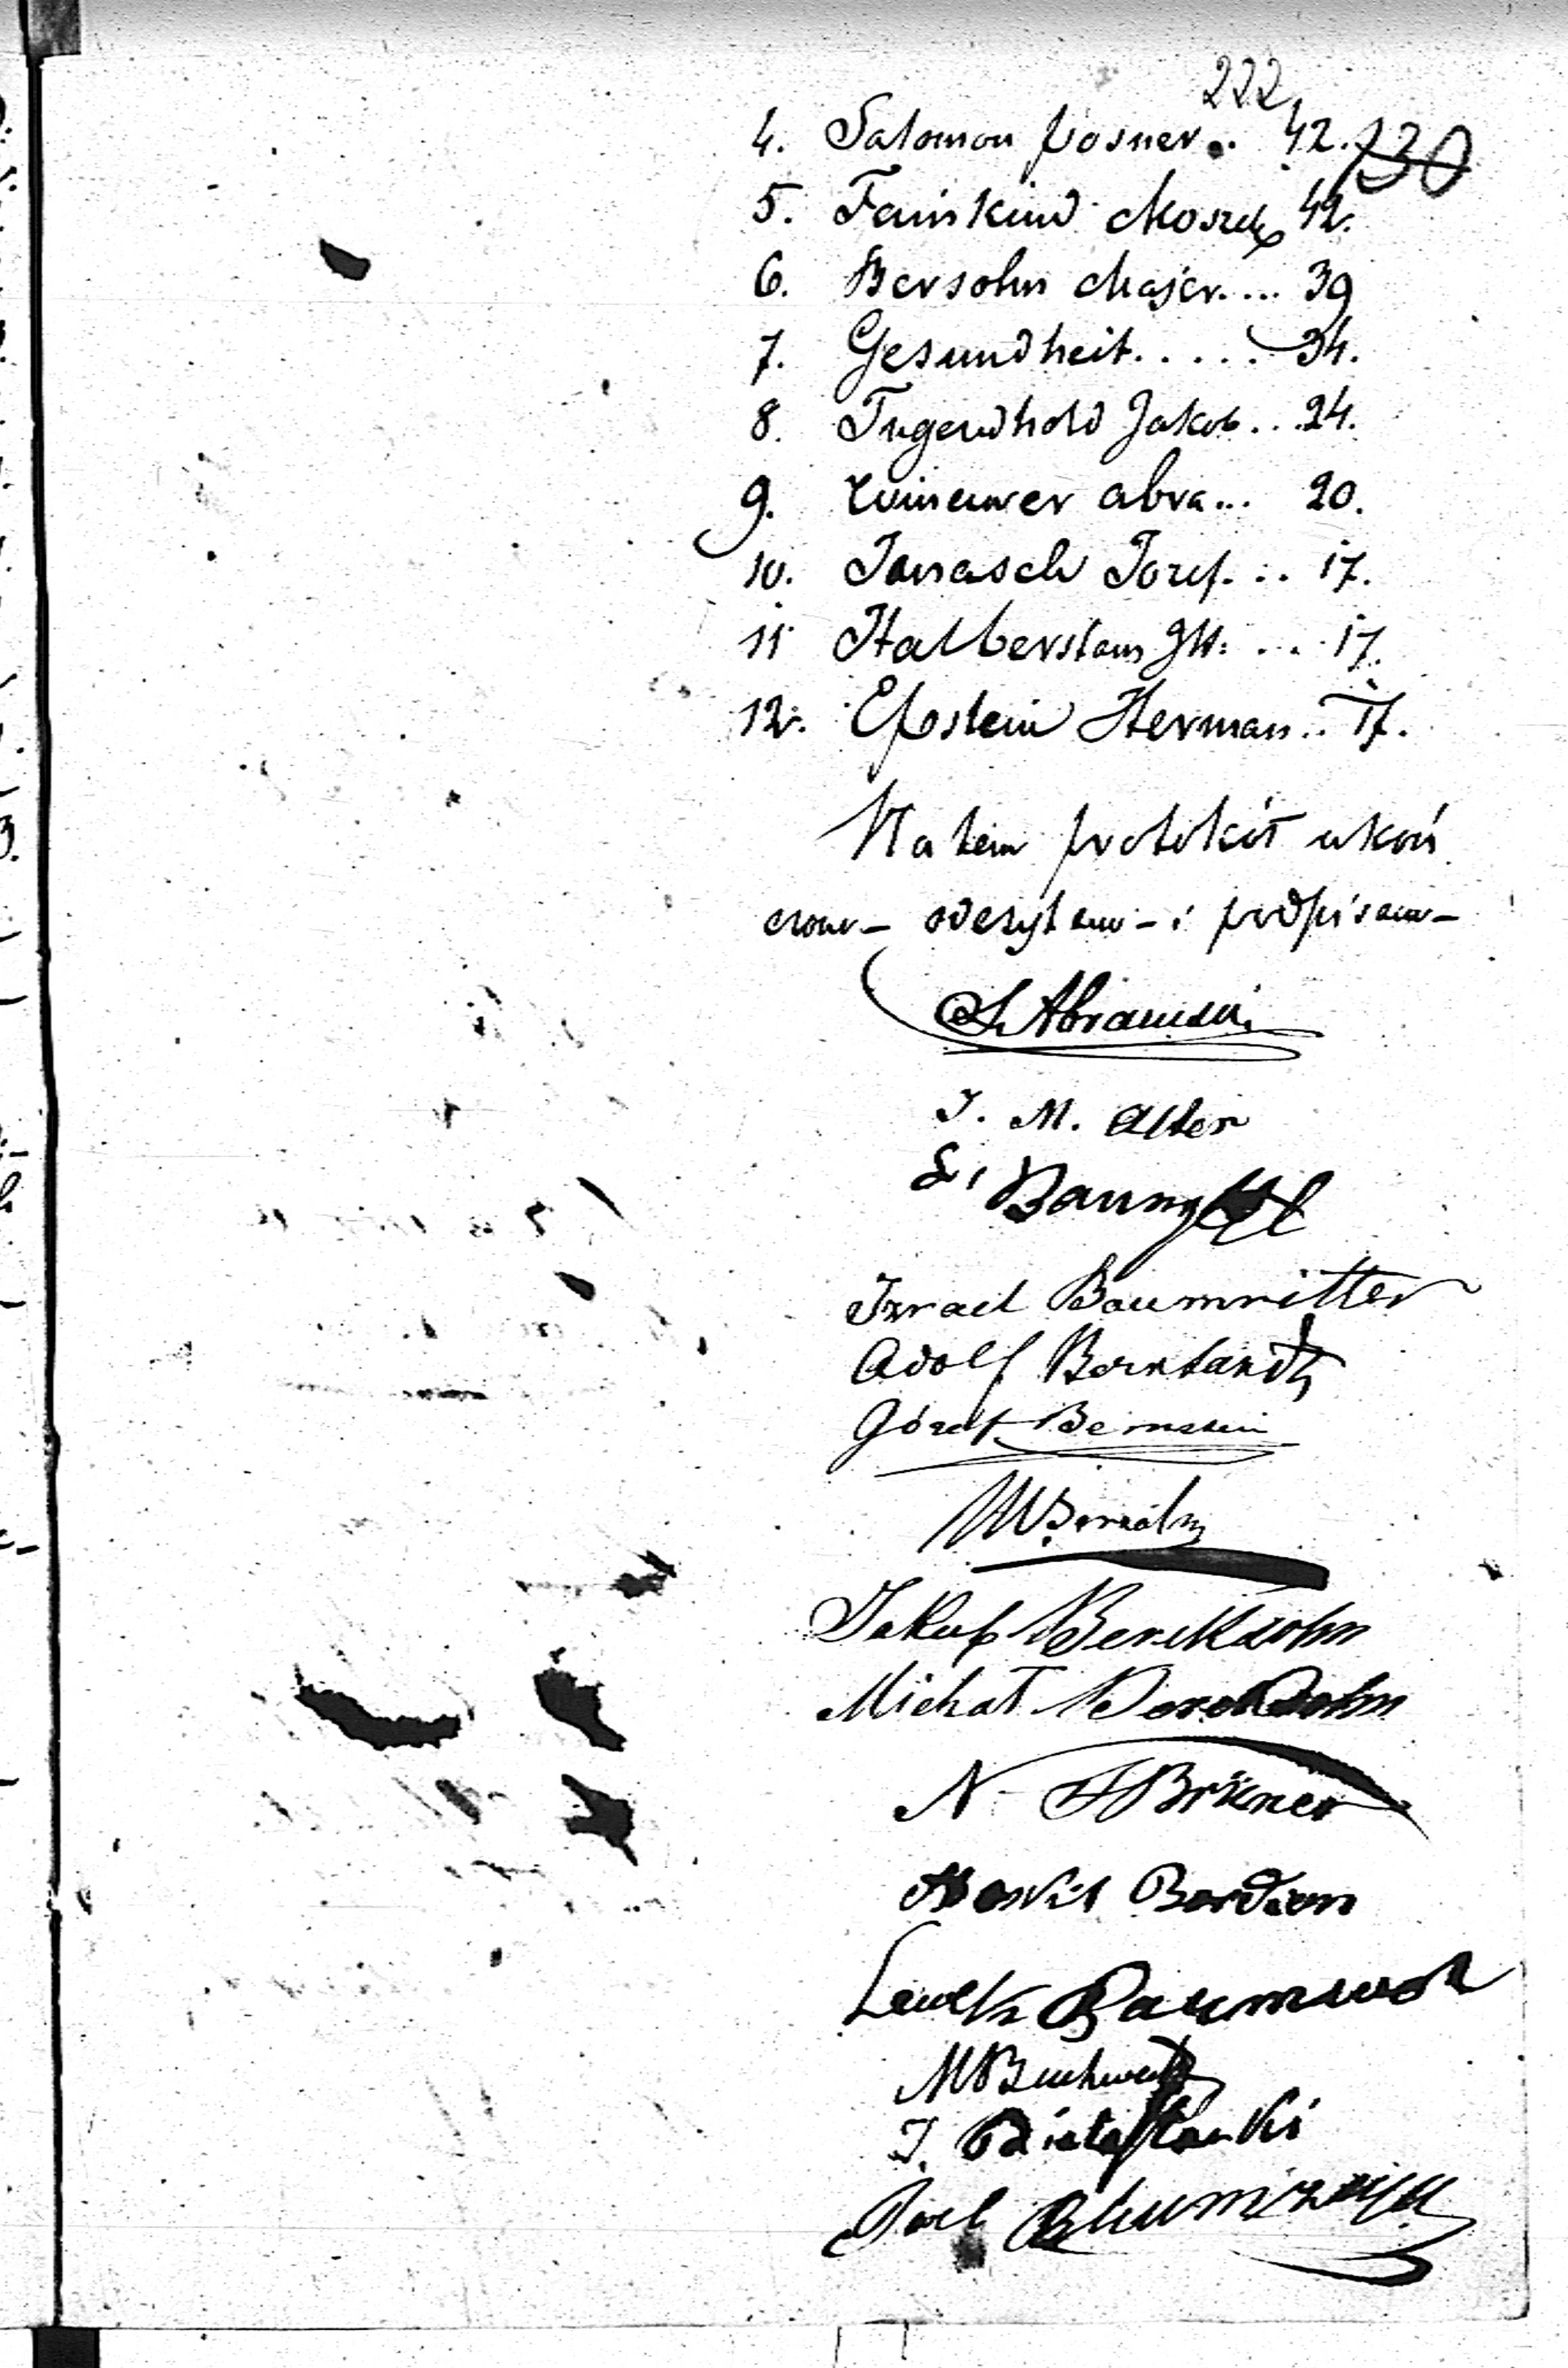 222.
130
4. Salomon Posner.. 42.
5. Fainkind Moszek 42.
6. Bersohn Majer.... 39
7. Gesundheit..... 34.
8. Tugendhold Jakob... 24.
9. Winawer Abra... 20.
10. Janasch Jozef... 17.
11 Halberstam ... 17.
12. Epstein Herman.. 17.
Na tem protokół ukoń
czono odczytano i podpisano
Abramson
J. M. Alter
Izrael Baumritter
Adolf Bernhardt
Józef Bernstein
M Bersohn
Jakub Bereksohn
Michał Bereksohn
N Birkner
Bordion
Lewek Baumwol
M Buchweitz
J. Białostocki
Joel